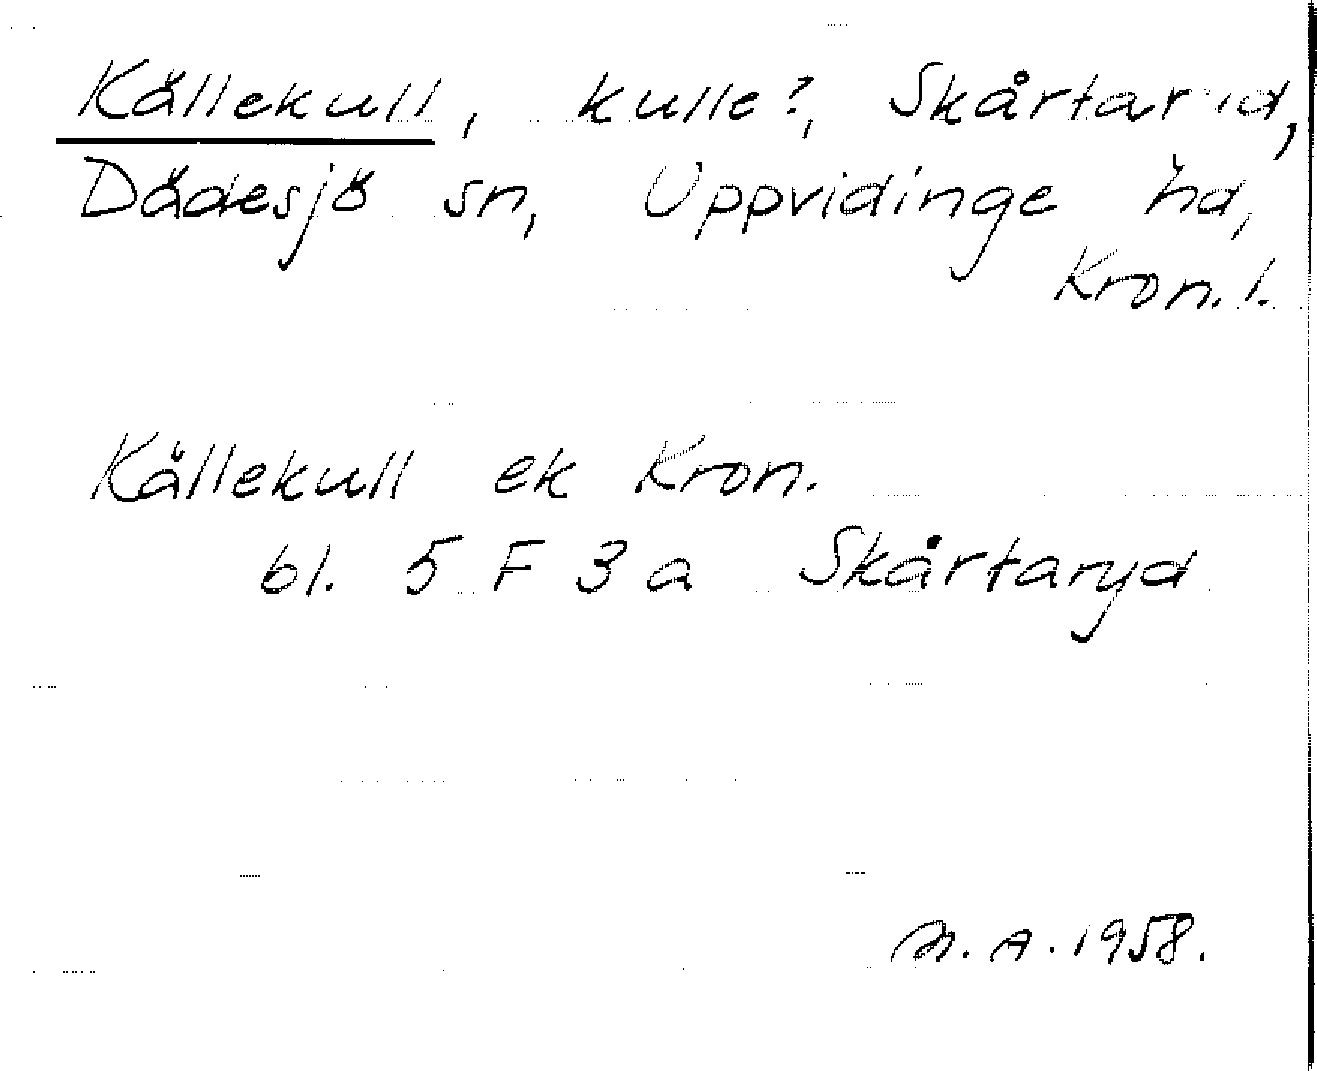 Källekull, kulle?, Skårtaryd,
Dädesjö sn, Uppvidinge hd,
Kron. l.
Källekull ek Kron.
bl. 5 F 3 a Skårtaryd
M. A. 1958.